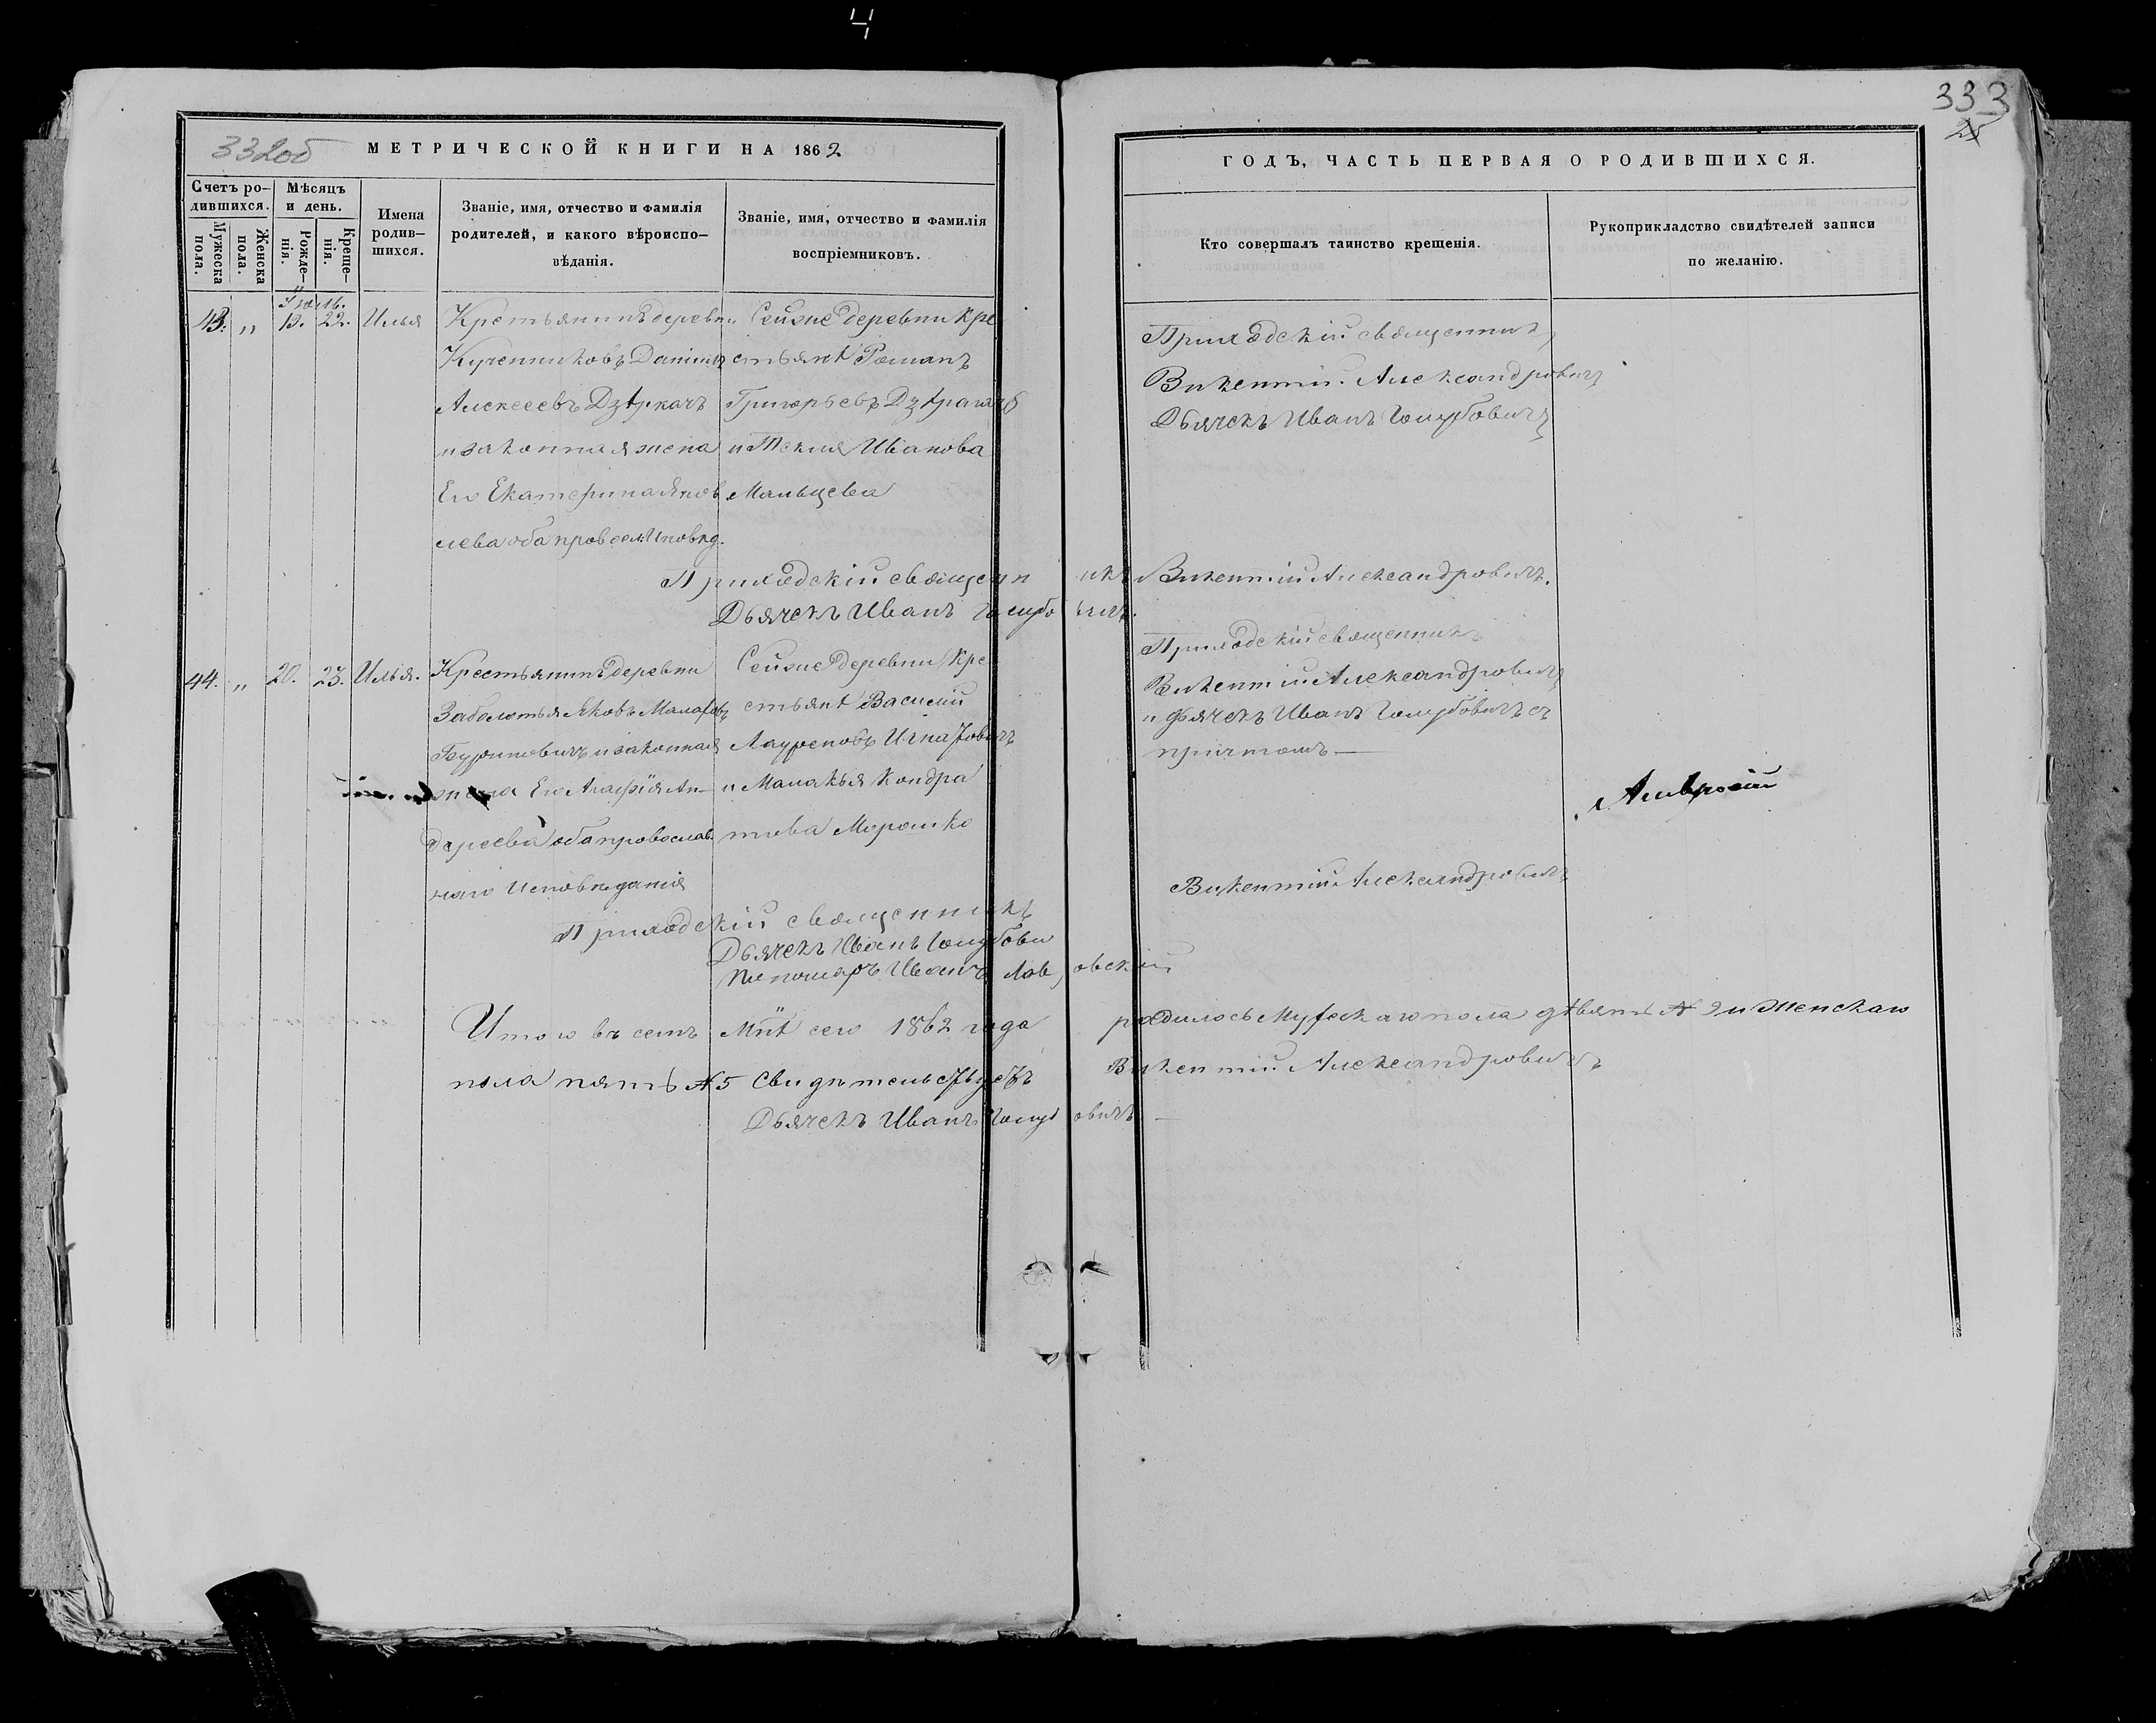 Ч
332об
333
25
МЕТРИЧЕСКОЙ КНИГИ НА 1862
ГОДЪ, ЧАСТЬ ПЕРВАЯ О РОДИВШИХСЯ.
Счетъ ро-
дившихся.
Мужеска
пола.
Женска
пола.
Мѣсяцъ
и день.
Рожде-
нія.
Креще-
нія.
Имена
родив-
шихся.
Званіе, имя, отчество и фамилія
родителей, и какого вѣроиспо-
вѣданія.
Званіе, имя, отчество и фамилія
воспріемниковъ.
Кто совершалъ таинство крещенія.
Рукоприкладство свидѣтелей записи
по желанію.
Іюль.
43. „ 22. Илья
Крестьянинъ деревни
Даніилъ
Алексеевъ
и законная жена
Его Екатерина Яков
лева оба правосл: Исповѣд.
Сейже деревни кре
стьянѣ Романъ
Григорьевъ
и Текля Иванова
Мальцева
Приходскій священникъ
Викентій Александровичъ
Дьячекъ Иванъ Голубовичъ
Приходскій священникъ Викентій Александровичъ.
Дьячекъ Иванъ Голубовичъ.
44. „ 20. 23. Илья.
Крестьянинъ деревни
Заболотья Яковъ
и законная
жена Его Агафія Ан-
дреева оба православ
наго Исповѣданія
Сейже деревни Кре
стьянѣ Василій
Лауреновъ Игнатовичъ
и Малакья Кондра
тьева
Приходскій священникъ
Викентій Александровичъ
и Дьячекъ Иванъ Голубовичъ съ
причтомъ —
Амвросій
Приходскій священникъ Викентій Александровичъ
Дьячекъ Иванъ Голубови
Пономаръ Иванъ
Итого въ семъ Мцѣ сего 1862 года родилось Мужескаго пола дѣвять № 9 и Женскаго
пола пять № 5 Свидѣтельствуетъ Викентій Александровичъ
Дьячекъ Иванъ Голубовичъ —